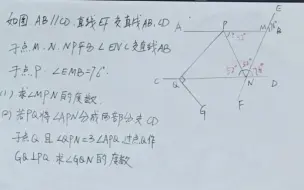 如图.AB∥CD.直线EF交直线AB.CD
于点M.N.NP平分∠ENC交直线AB
于点P.∠EMB=76°.
(1)求∠MPN的度数.
(2)若PQ将∠APN分成两部分交CD
于点Q.且∠QPN=3∠APQ.过点Q作
GQ⊥PQ.求∠GQN的度数
A P M B
E
52°
76°
C Q N D
G F